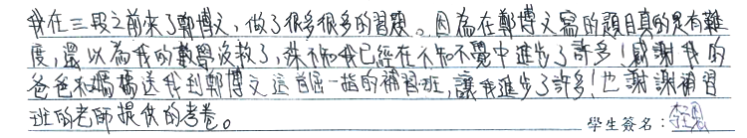 我在三段之前來了鄭博文，做了很多很多的習題。因為在鄭博文寫的題目真的是有難
度，還以為我的數學沒救了，殊不知我已經在不知不覺中進步了許多！感謝我的
爸爸和媽媽送我到鄭博文這首屈一指的補習班，讓我進步了許多！也謝謝補習
班的老師提供的考卷。
學生簽名：